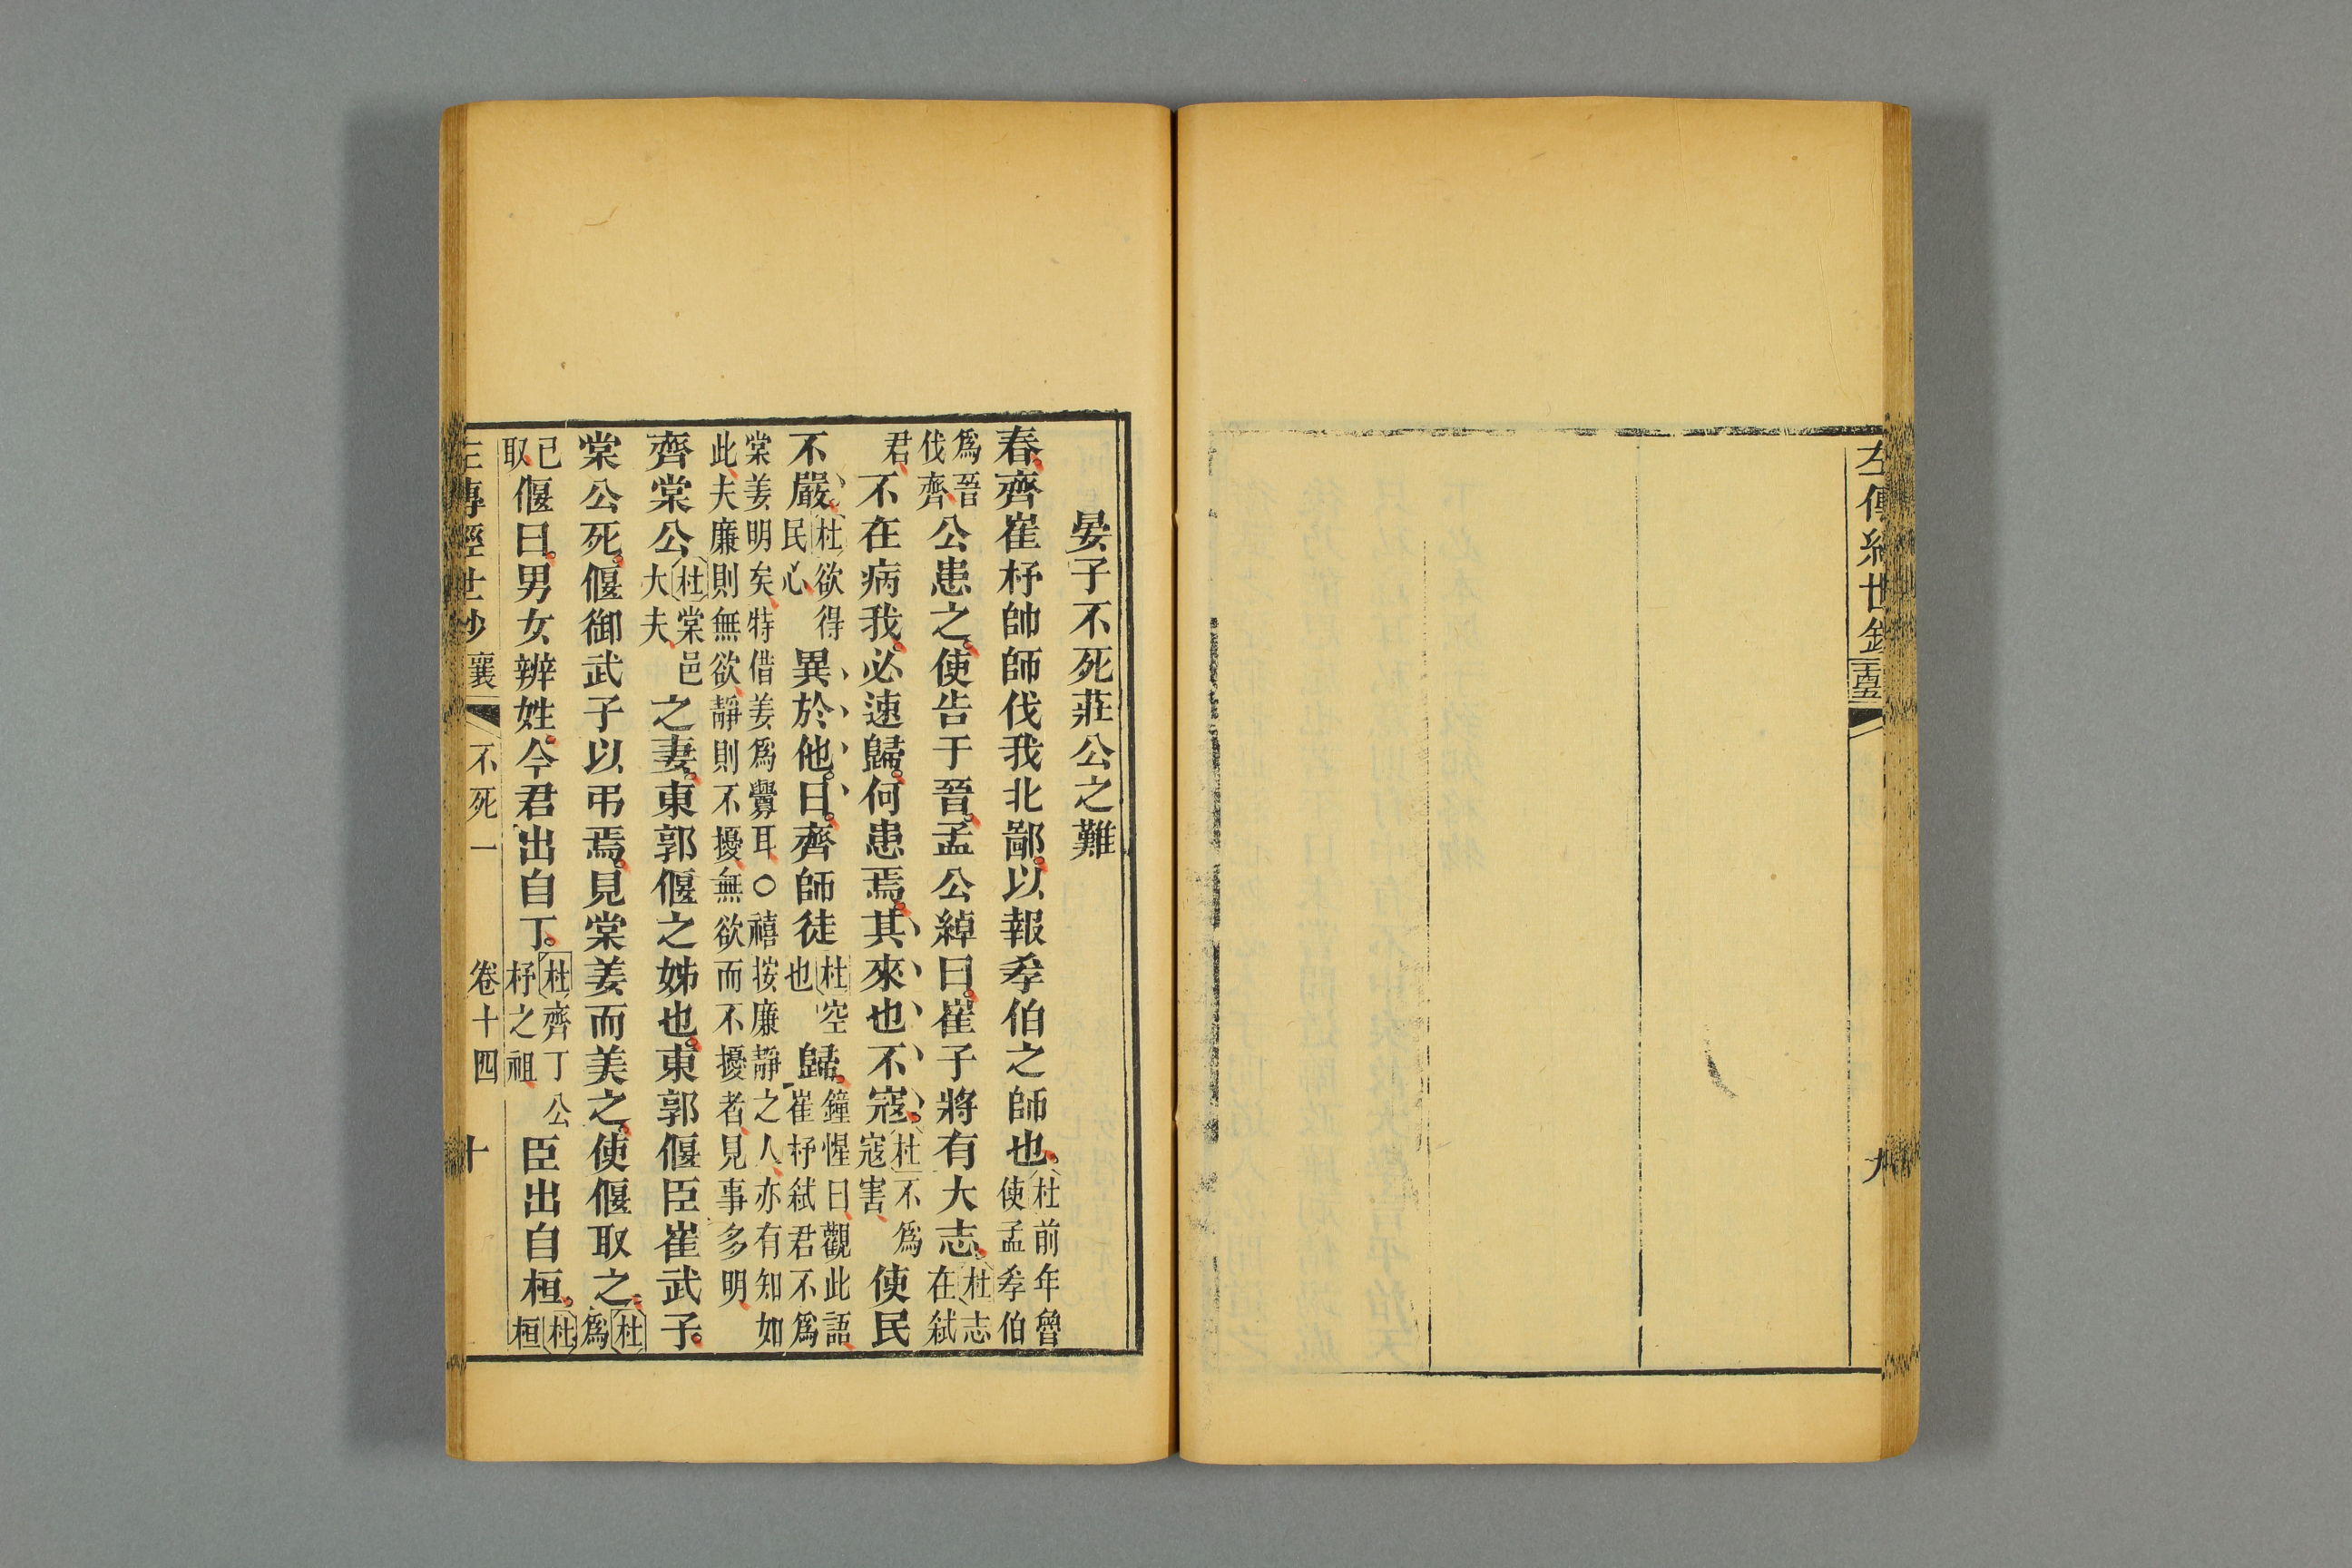 左傳經世鈔
九
晏子不死莊公之難
春齊崔杼帥師伐我北鄙以報孝伯之師也杜前年魯使孟孝伯
爲晉伐齊公患之使告于晉孟公綽曰崔子將有大志杜志在弑
君不在病我必速歸何患焉其來也不寇杜不爲寇害使民
不嚴杜欲得民心異於他日齊師徒杜空也歸鐘惺曰觀此語崔杼弑君不爲
棠姜明矣特借姜爲釁耳○禧按廉靜之人亦有知如此夫廉則無欲靜則不擾無欲而不擾者見事多明
齊棠公杜棠邑大夫之妻東郭偃之姊也東郭偃臣崔武子
棠公死偃御武子以弔焉見棠姜而美之使偃取之杜爲
已取偃曰男女辨姓今君出自丁杜齊丁公杼之祖臣出自桓杜桓
左傳經世鈔 襄 不死一 卷十四 十